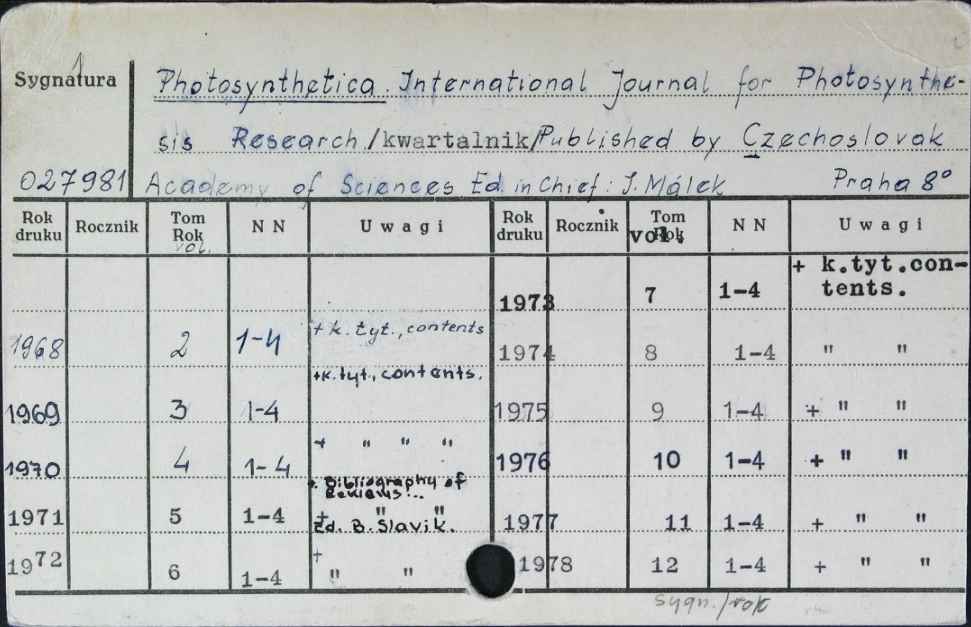 Sygnatura Photosynthetica. International Journal for Photosynthe-
sis Research/kwartalnik/Published by Czechoslovak
027981 Academy of Sciences Ed. in Chief: I. Málek Praha 8°
Rok druku Rocznik Tom Rok vol. N N Uwagi Rok druku Rocznik Tom Rok vol. N N Uwagi
1973 7 1-4 + k.tyt.con-
tents.
1968 2 1-4 + k. tyt., contents 1974 8 1-4 " "
1969 3 1-4 +k.tyt., contents. 1975 9 1-4 + " "
1970 4 1-4 + " " " 1976 10 1-4 + " "
+. Bibliography of
Reviews...
1971 5 1-4 + " " 1977 11 1-4 + " "
Ed. B. Slavik.
1972 6 1-4 + " " 1978 12 1-4 + " "
sygn./rok